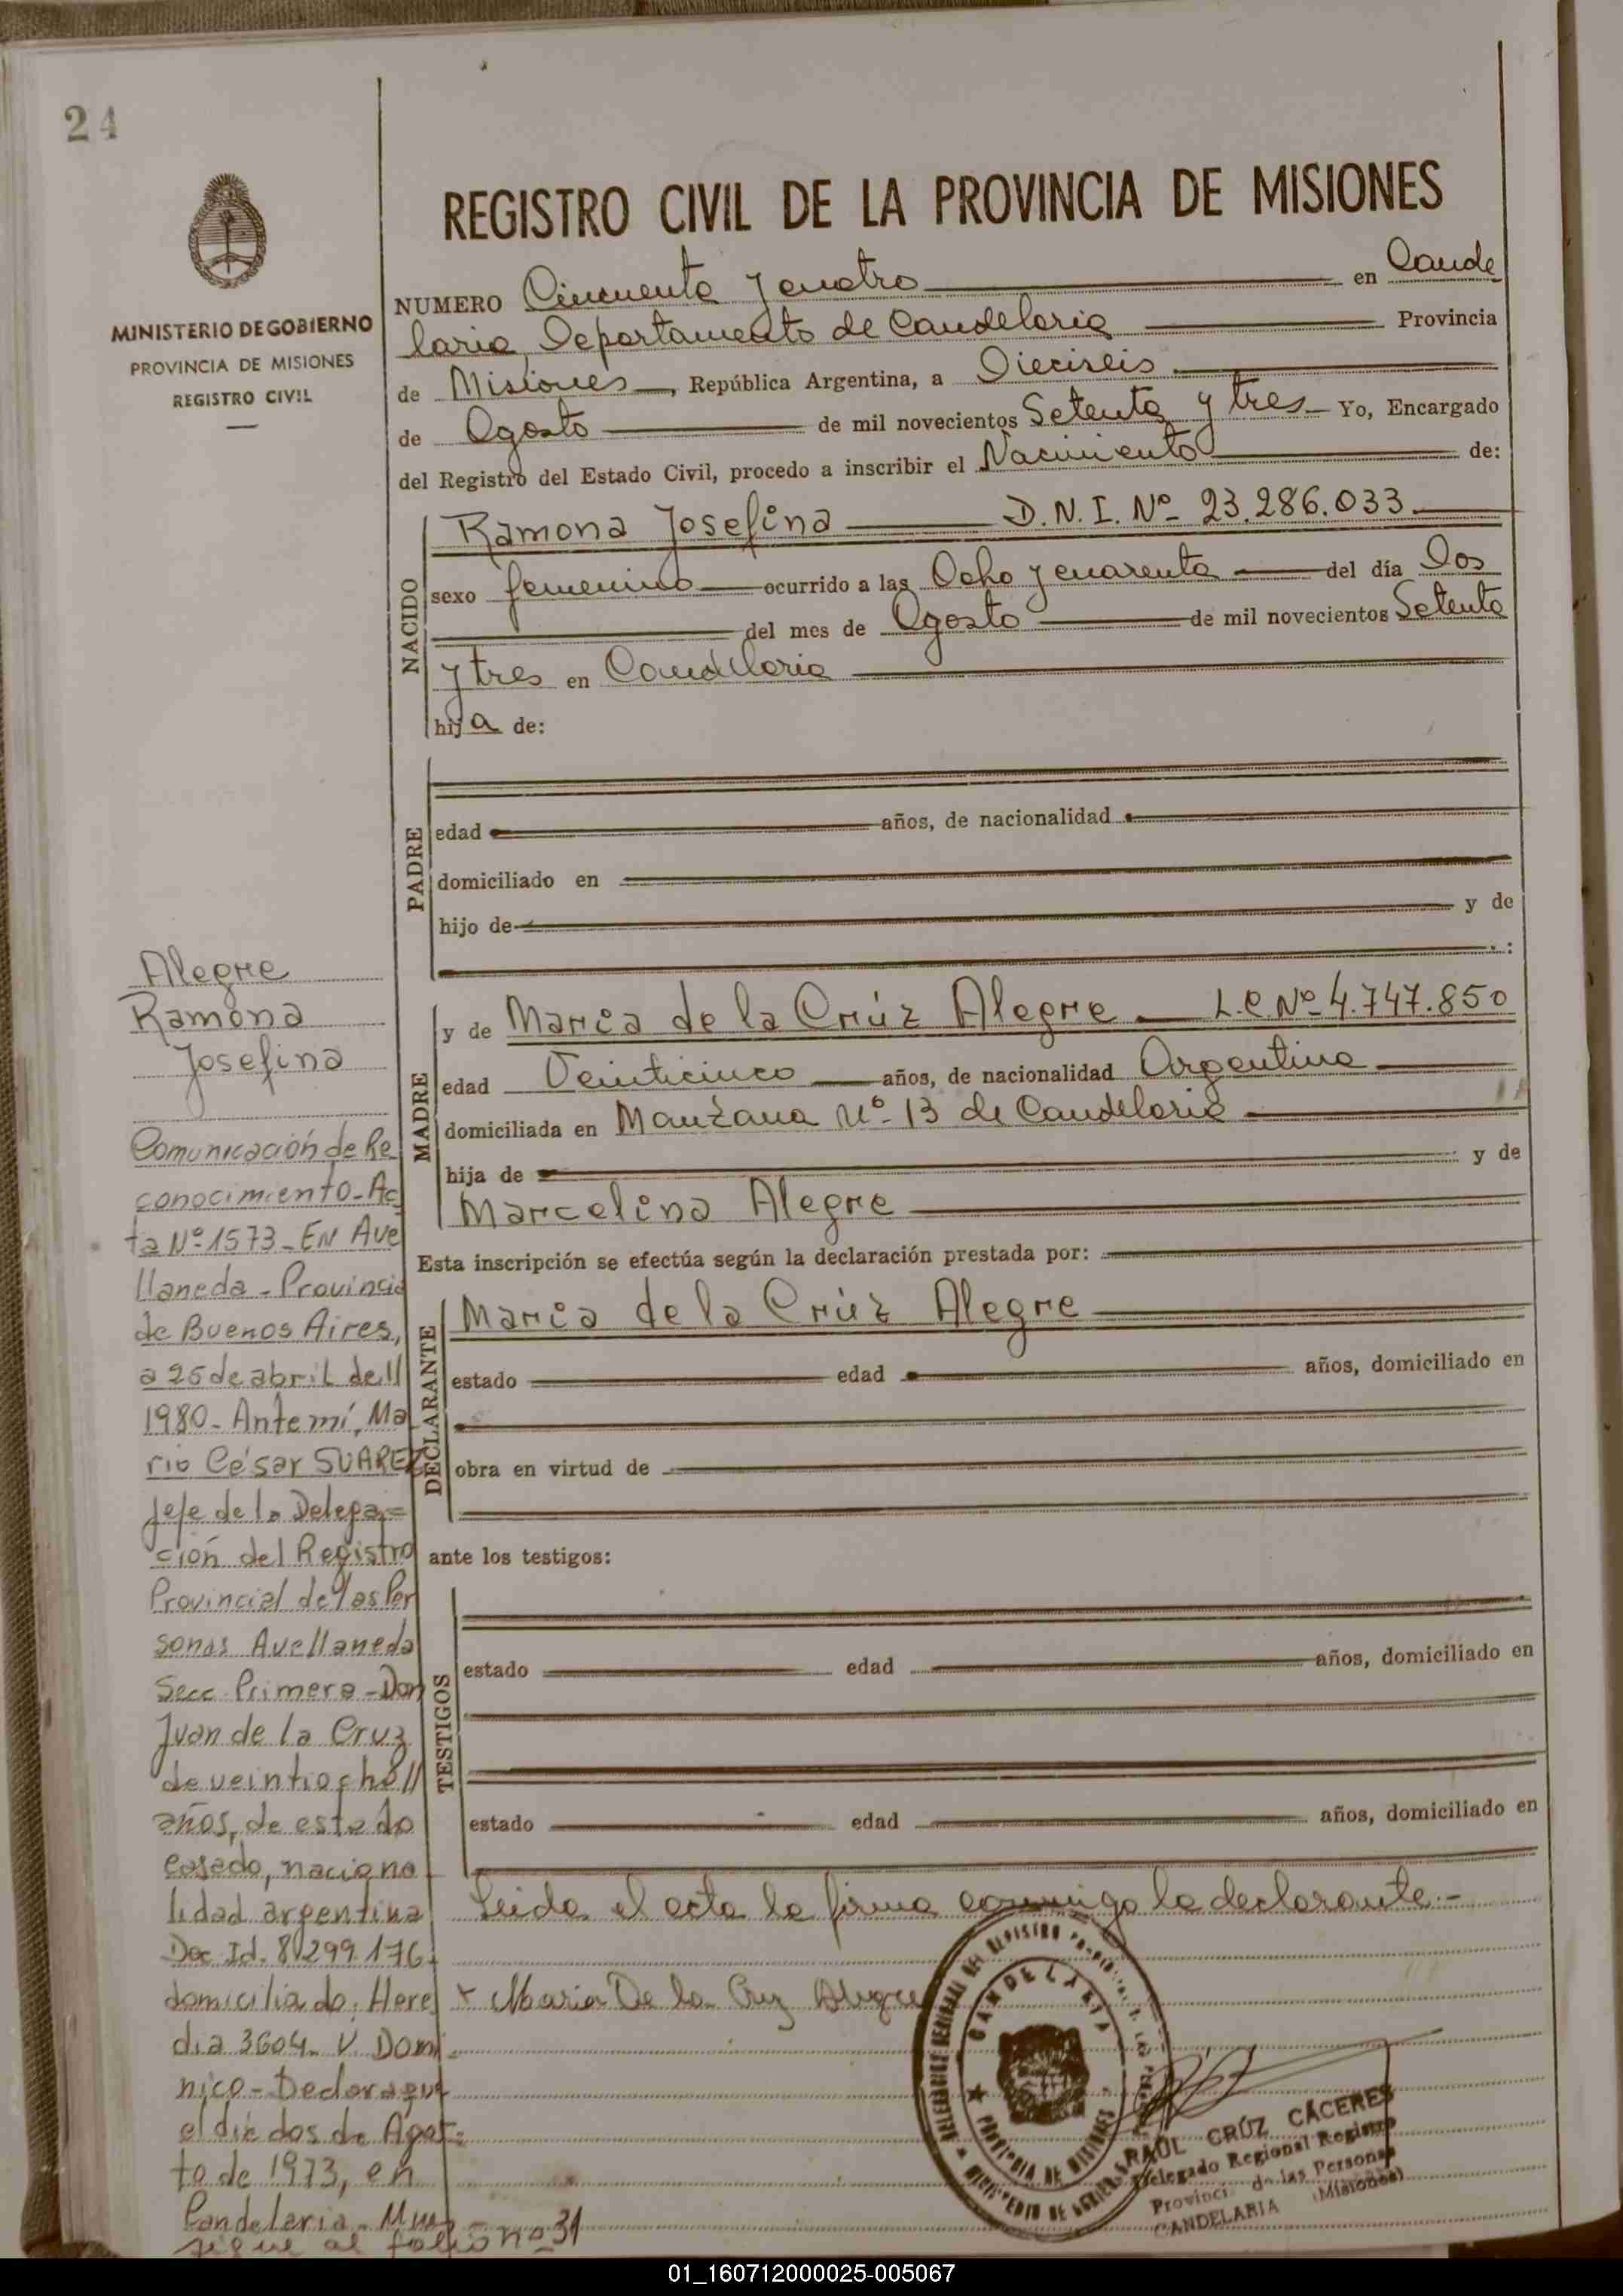 24
MINISTERIO DE GOBIERNO
PROVINCIA DE MISIONES
REGISTRO CIVIL
REGISTRO CIVIL DE LA PROVINCIA DE MISIONES
NUMERO Cincuenta y cuatro en Cande
laria, Departamento de Candelaria Provincia
de Misiones, República Argentina, a Dieciseis
de Agosto de mil novecientos Setenta y tres Yo, Encargado
del Registro del Estado Civil, procedo a inscribir el Nacimiento de:
NACIDO
Ramona Josefina D.N.I. Nº 23.286.033
sexo femenino ocurrido a las Ocho y cuarenta del día Dos
del mes de Agosto de mil novecientos Setenta
y tres en Candelaria
hija de:
PADRE
edad años, de nacionalidad
domiciliado en
hijo de y de
MADRE
y de Maria de la Crúz Alegre L.C. Nº 4.747.850
edad Veinticinco años, de nacionalidad Argentina
domiciliada en Manzana Nº 13 de Candelaria
hija de y de
Marcelina Alegre
Esta inscripción se efectúa según la declaración prestada por:
DECLARANTE
Maria de la Crúz Alegre
estado edad años, domiciliado en
obra en virtud de
ante los testigos:
TESTIGOS
estado edad años, domiciliado en
estado edad años, domiciliado en
Leida el acta la firma conmigo la declarante.-
x Maria De la Cruz Alegre
CANDELARIA
PROVINCIA DE MISIONES
RAÚL CRÚZ CÁCERES
Delegado Regional Registro
Provinci de las Personas
CANDELARIA (Misiones)
Alegre
Ramona
Josefina
Comunicación de Re
conocimiento-Ac
ta Nº 1573-EN Ave
llaneda-Provincia
de Buenos Aires,
a 25 de abril de //
1980-Ante mí, Ma
rio César SUAREZ
Jefe de la Delega=
ción del Registro
Provincial de las Per
sonas Avellaneda
Secc. Primera-Don
Juan de la Cruz
de veintiocho //
años, de estado
casado, naciona
lidad argentina
Doc. Id. 8.299.176.
domiciliado: Here
dia 3604. V. Domi
nico-Declara que
el día dos de Agos=
to de 1973, en
Candelaria-
sigue al folio nº 31
01_160712000025-005067